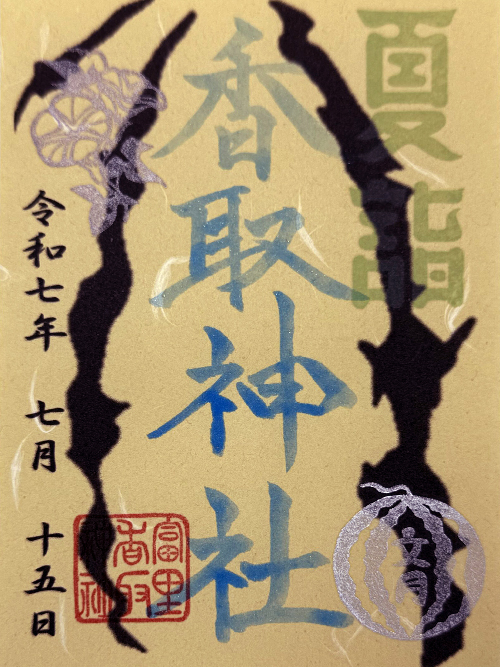 夏詣
香取神社
富里
香取
神社
文月
令和七年 七月 十五日